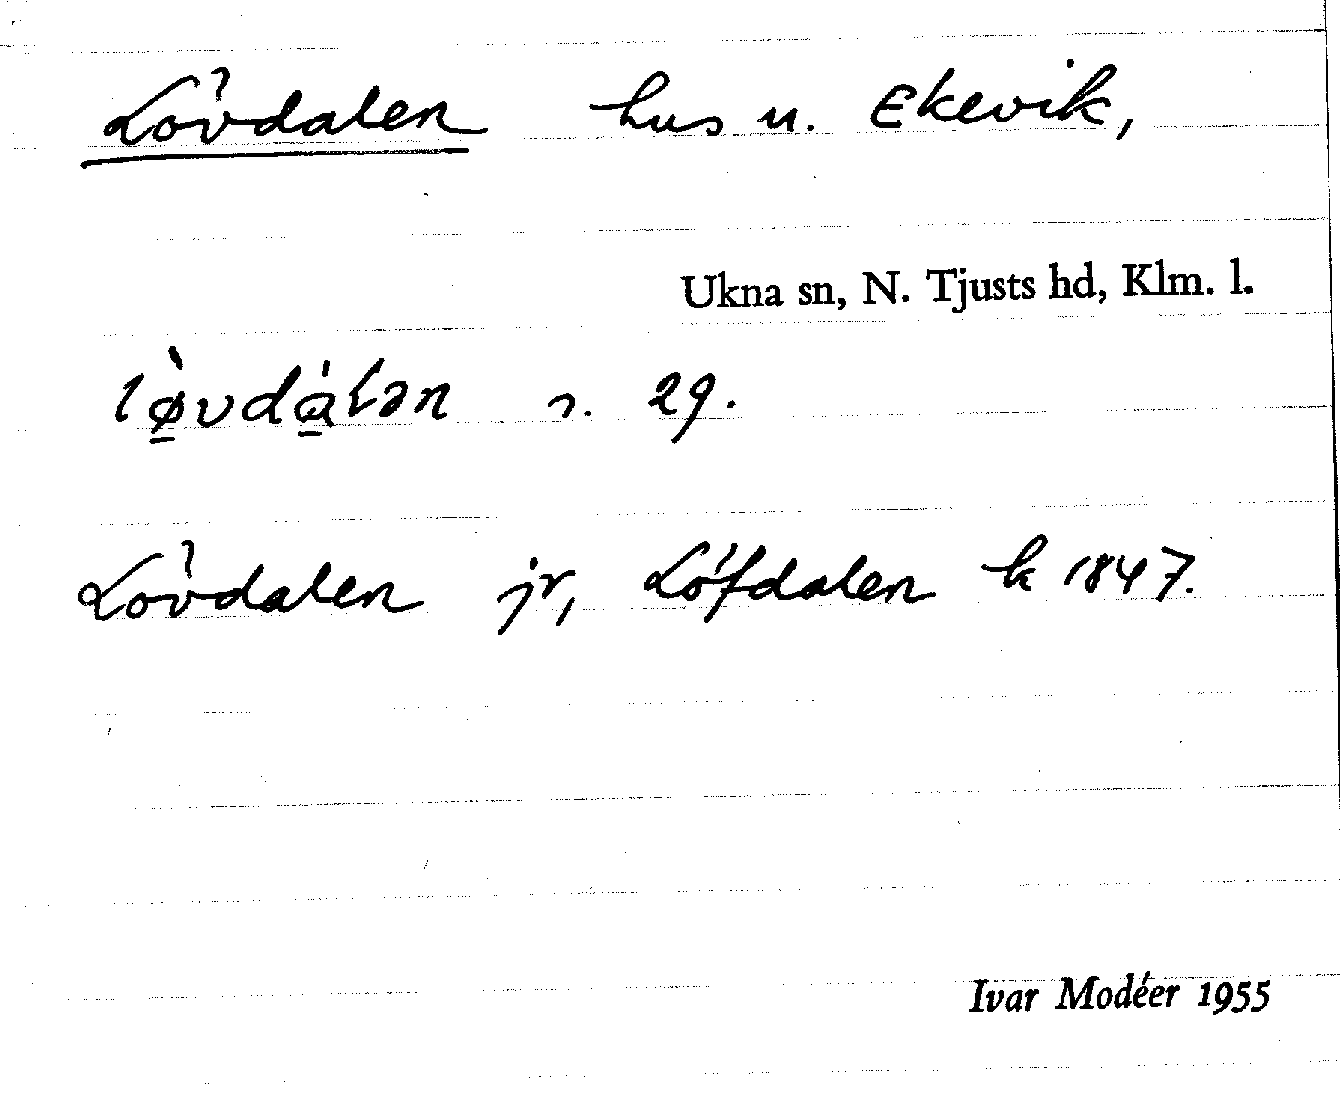 Lövdalen hus u. Ekevik,
Ukna sn, N. Tjusts hd, Klm. l.
lø̱̀vdá̱lən s. 29.
Lövdalen jr, Löfdalen k 1847.
Ivar Modéer 1955